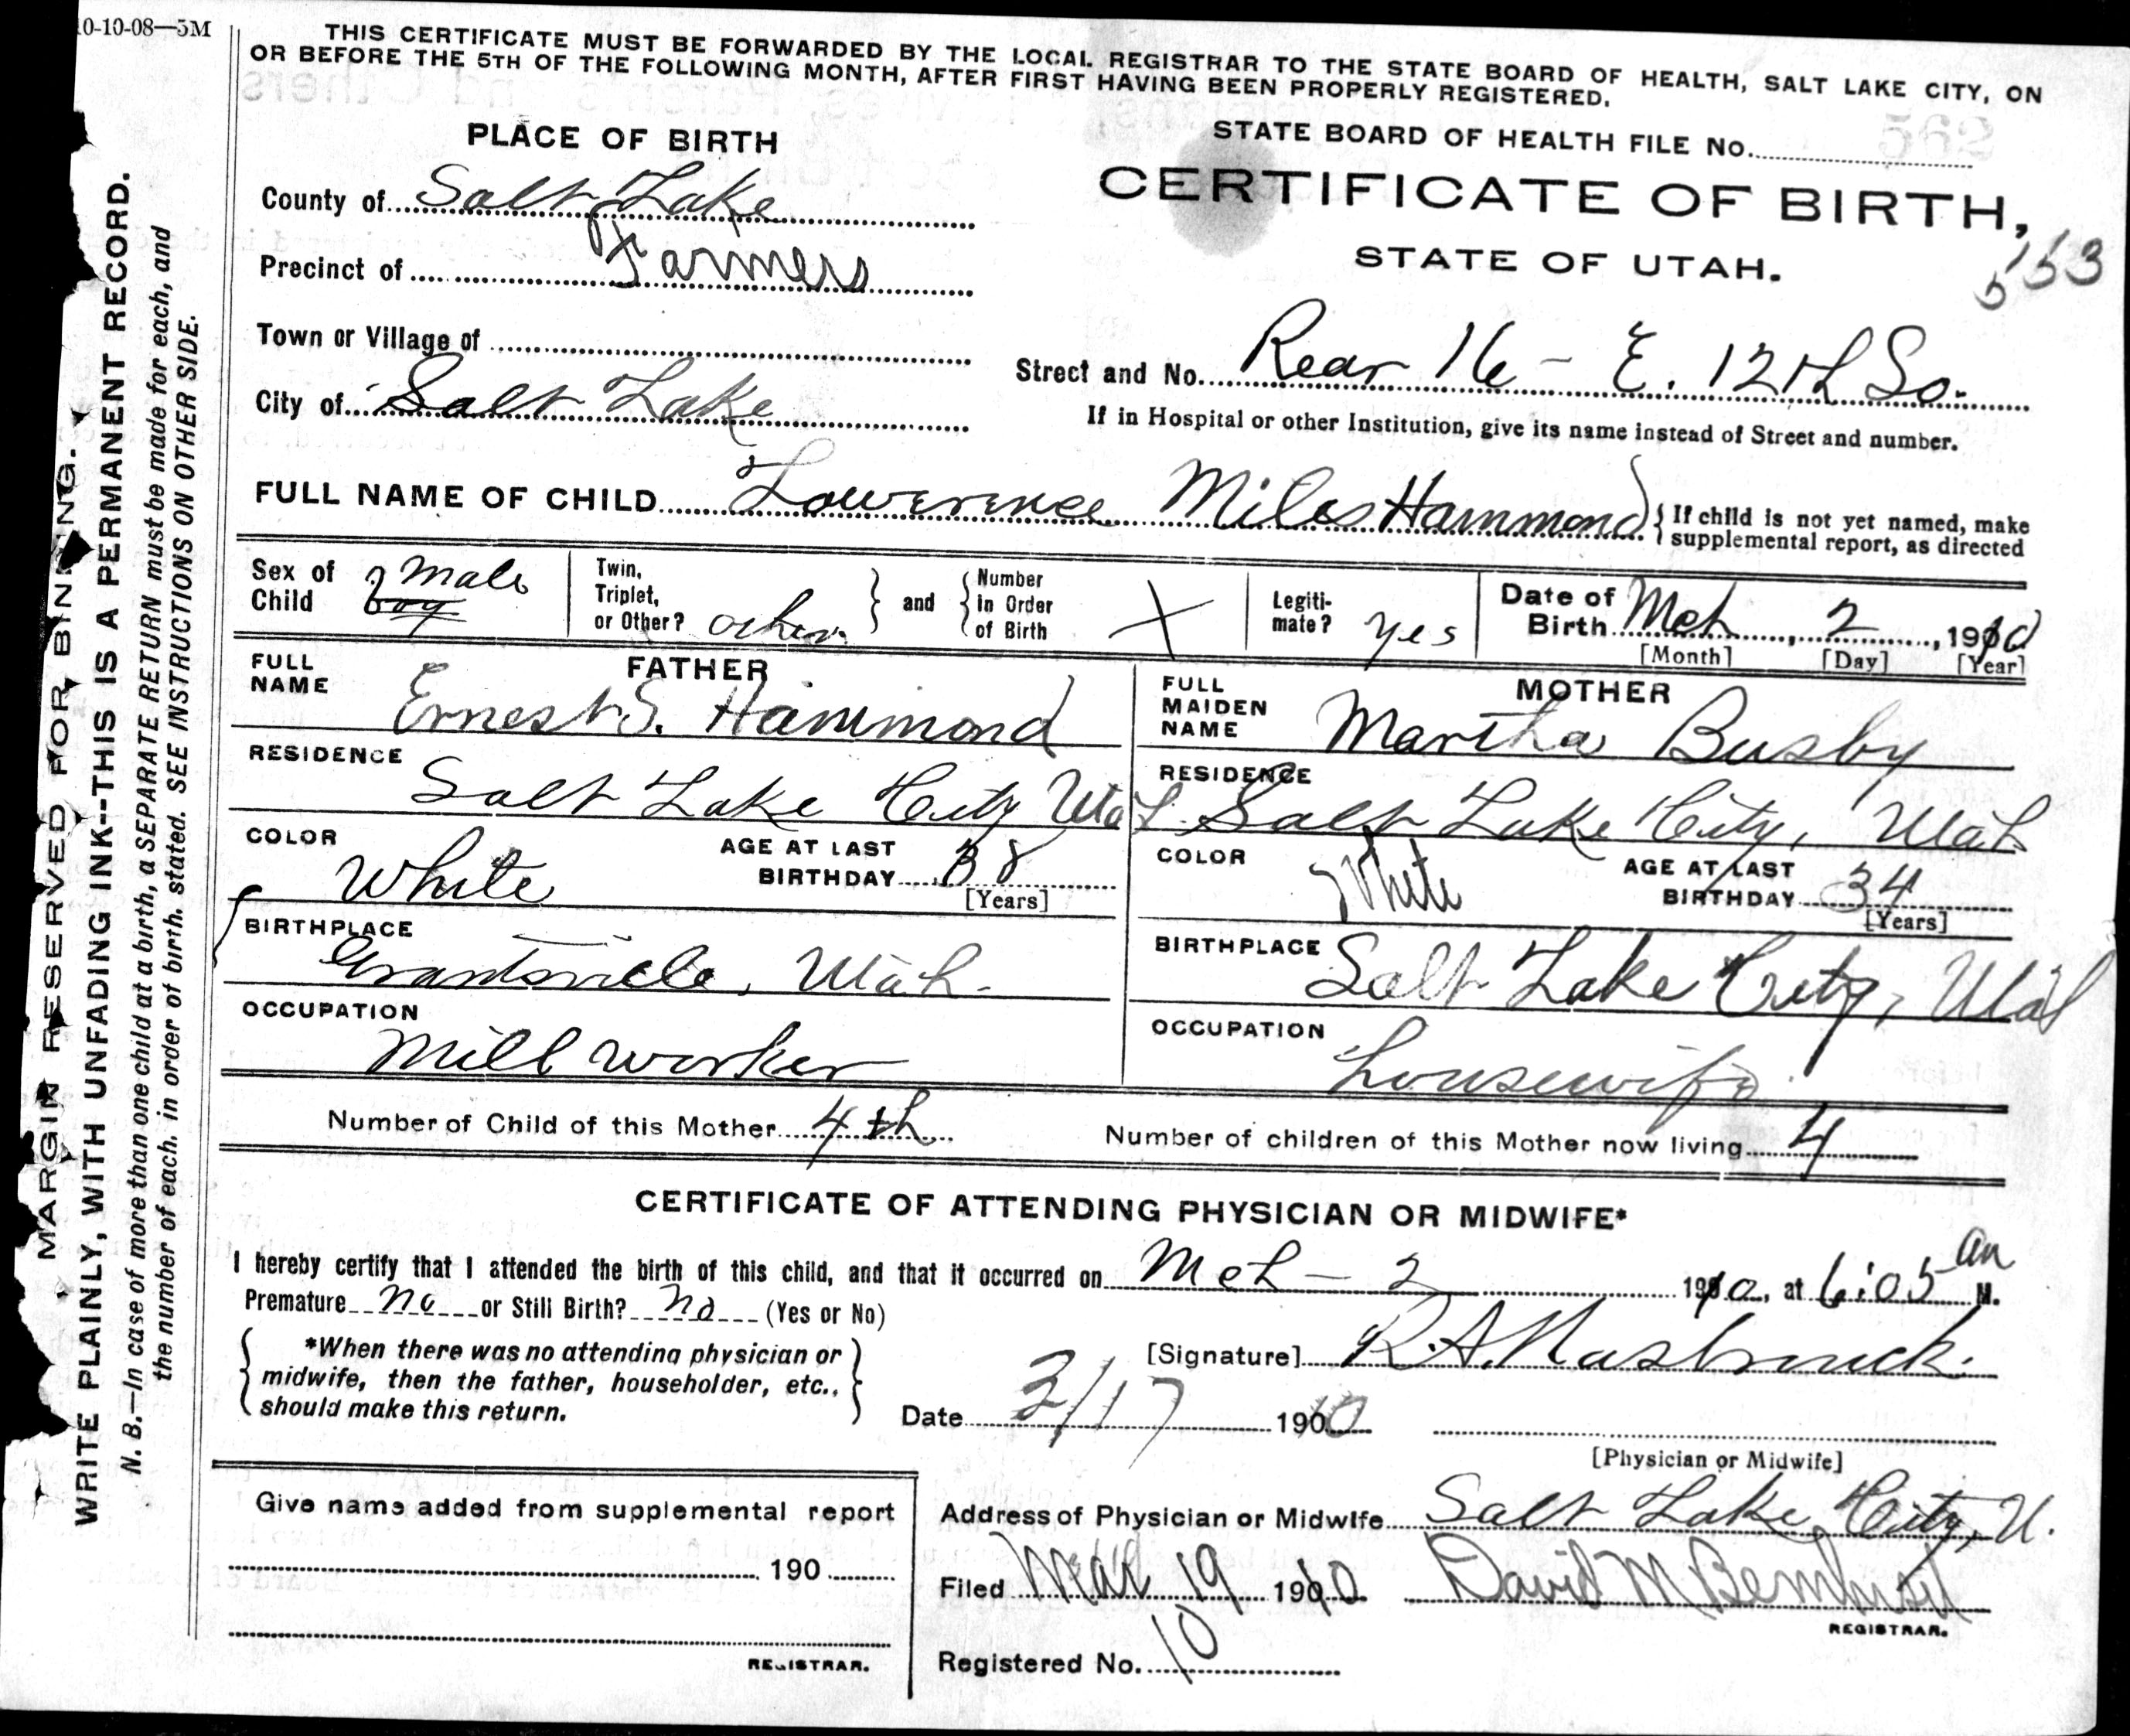 10-10-08—5M
THIS CERTIFICATE MUST BE FORWARDED BY THE LOCAL REGISTRAR TO THE STATE BOARD OF HEALTH, SALT LAKE CITY, ON
OR BEFORE THE 5TH OF THE FOLLOWING MONTH, AFTER FIRST HAVING BEEN PROPERLY REGISTERED.
PLACE OF BIRTH
STATE BOARD OF HEALTH FILE No.
County of Salt Lake
CERTIFICATE OF BIRTH,
Precinct of Farmers
STATE OF UTAH.
553
Town or Village of
Street and No. Rear 16 - E. 12th So.
City of Salt Lake
If in Hospital or other Institution, give its name instead of Street and number.
FULL NAME OF CHILD Lowerence Miles Hammond
If child is not yet named, make
supplemental report, as directed
Sex of Child Male boy
Twin, Triplet, or Other? other
and
Number in Order of Birth X
Legiti-mate? yes
Date of Birth Mch, 2, 1910
[Month] [Day] [Year]
FATHER
FULL NAME Ernest S. Hammond
RESIDENCE
Salt Lake City Utah
COLOR White
AGE AT LAST BIRTHDAY 38
[Years]
BIRTHPLACE
Grantsville, Utah.
OCCUPATION
Mill worker
MOTHER
FULL MAIDEN NAME Martha Busby
RESIDENCE
Salt Lake City, Utah
COLOR White
AGE AT LAST BIRTHDAY 34
[Years]
BIRTHPLACE Salt Lake City, Utah
OCCUPATION
housewife
Number of Child of this Mother 4th
Number of children of this Mother now living 4
CERTIFICATE OF ATTENDING PHYSICIAN OR MIDWIFE*
I hereby certify that I attended the birth of this child, and that it occurred on Mch - 2 1910, at 6:05 am M.
Premature no or Still Birth? no (Yes or No)
*When there was no attending physician or
midwife, then the father, householder, etc.,
should make this return.
[Signature] R.A. Hasbrouck.
Date 3/17 1910
[Physician or Midwife]
Give name added from supplemental report
190
REGISTRAR.
Address of Physician or Midwife Salt Lake City, U.
Filed Mar 19 1910
David M
REGISTRAR.
Registered No. 10
MARGIN RESERVED FOR BINDING.
WRITE PLAINLY, WITH UNFADING INK--THIS IS A PERMANENT RECORD.
N. B.—In case of more than one child at a birth, a SEPARATE RETURN must be made for each, and
the number of each, in order of birth, stated. SEE INSTRUCTIONS ON OTHER SIDE.